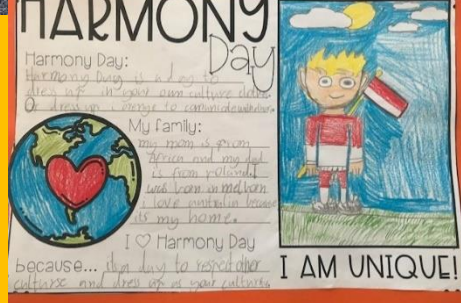 HARMONY
Day
Harmony Day:
Harmony Day is a day to
dress up in your own culture
Or dress up in orenge to comunicate
My family:
my mom is from
Africa and my dad
is from poland I
was born in melborn
i love australia because
its my home.
I ♡ Harmony Day
because... its a day to respect other
culturse and dress up as your cultures
I AM UNIQUE!